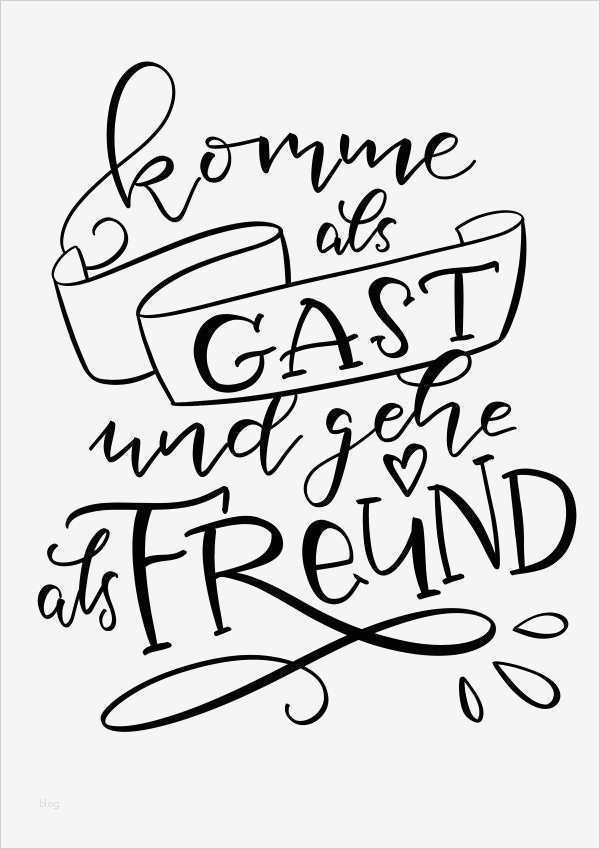 komme
als
GAST
und gehe
als FReUND
blog